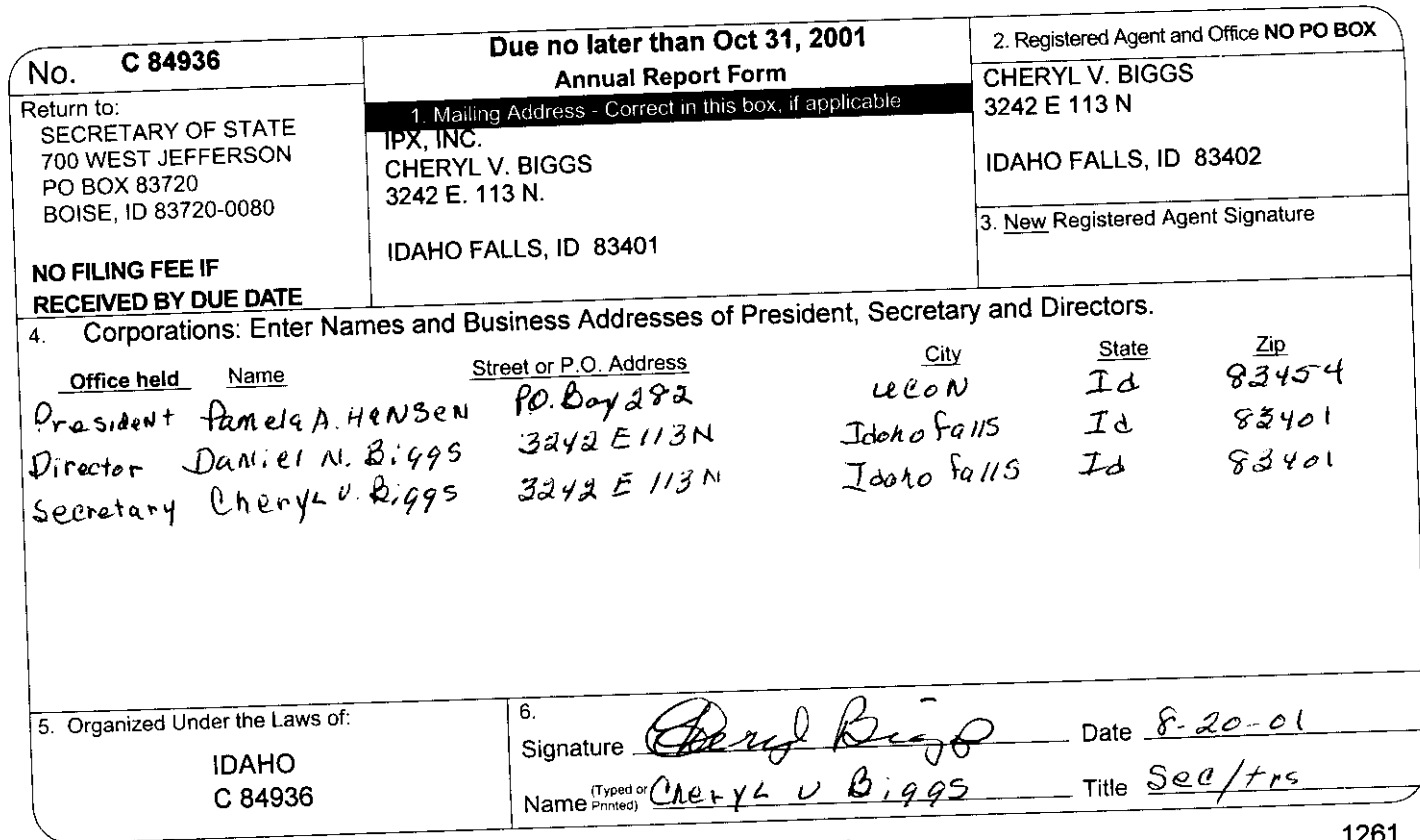 No. C 84936
Return to:
SECRETARY OF STATE
700 WEST JEFFERSON
PO BOX 83720
BOISE, ID 83720-0080
NO FILING FEE IF
RECEIVED BY DUE DATE
Due no later than Oct 31, 2001
Annual Report Form
1. Mailing Address - Correct in this box, if applicable
IPX, INC.
CHERYL V. BIGGS
3242 E. 113 N.
IDAHO FALLS, ID 83401
2. Registered Agent and Office NO PO BOX
CHERYL V. BIGGS
3242 E 113 N
IDAHO FALLS, ID 83402
3. New Registered Agent Signature
4. Corporations: Enter Names and Business Addresses of President, Secretary and Directors.
Office held Name Street or P.O. Address City State Zip
President Pamela A. HANSEN PO. Box 282 UCON Id 83454
Director Daniel N. Biggs 3242 E 113 N Idaho Falls Id 83401
Secretary Cheryl V. Biggs 3242 E 113 N Idaho Falls Id 83401
5. Organized Under the Laws of:
IDAHO
C 84936
6.
Signature Cheryl Biggs Date 8-20-01
Name (Typed or Printed) Cheryl V Biggs Title Sec/trs
1261